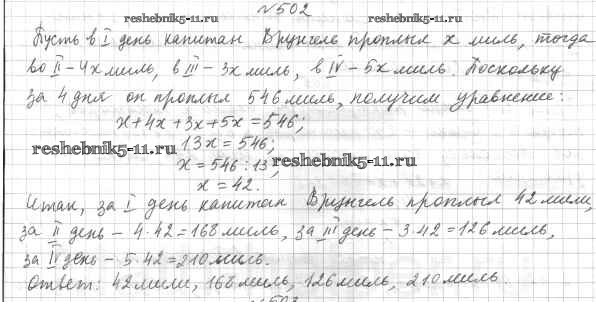 №502
reshebnik5-11.ru
reshebnik5-11.ru
Пусть в I день капитан Врунгель проплыл x миль, тогда
во II – 4x миль, в III – 3x миль, в IV – 5x миль. Поскольку
за 4 дня он проплыл 546 миль, получим уравнение:
x+4x+3x+5x=546;
13x=546;
reshebnik5-11.ru
x=546:13;
reshebnik5-11.ru
x=42.
Итак, за I день капитан Врунгель проплыл 42 мили,
за II день – 4·42=168 миль, за III день – 3·42=126 миль,
за IV день – 5·42=210 миль.
Ответ: 42 мили, 168 миль, 126 миль, 210 миль.